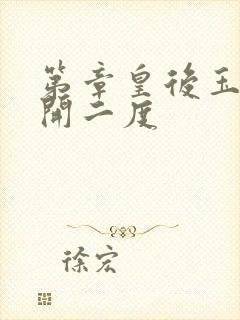 第章皇後玉
開二度
徐宏